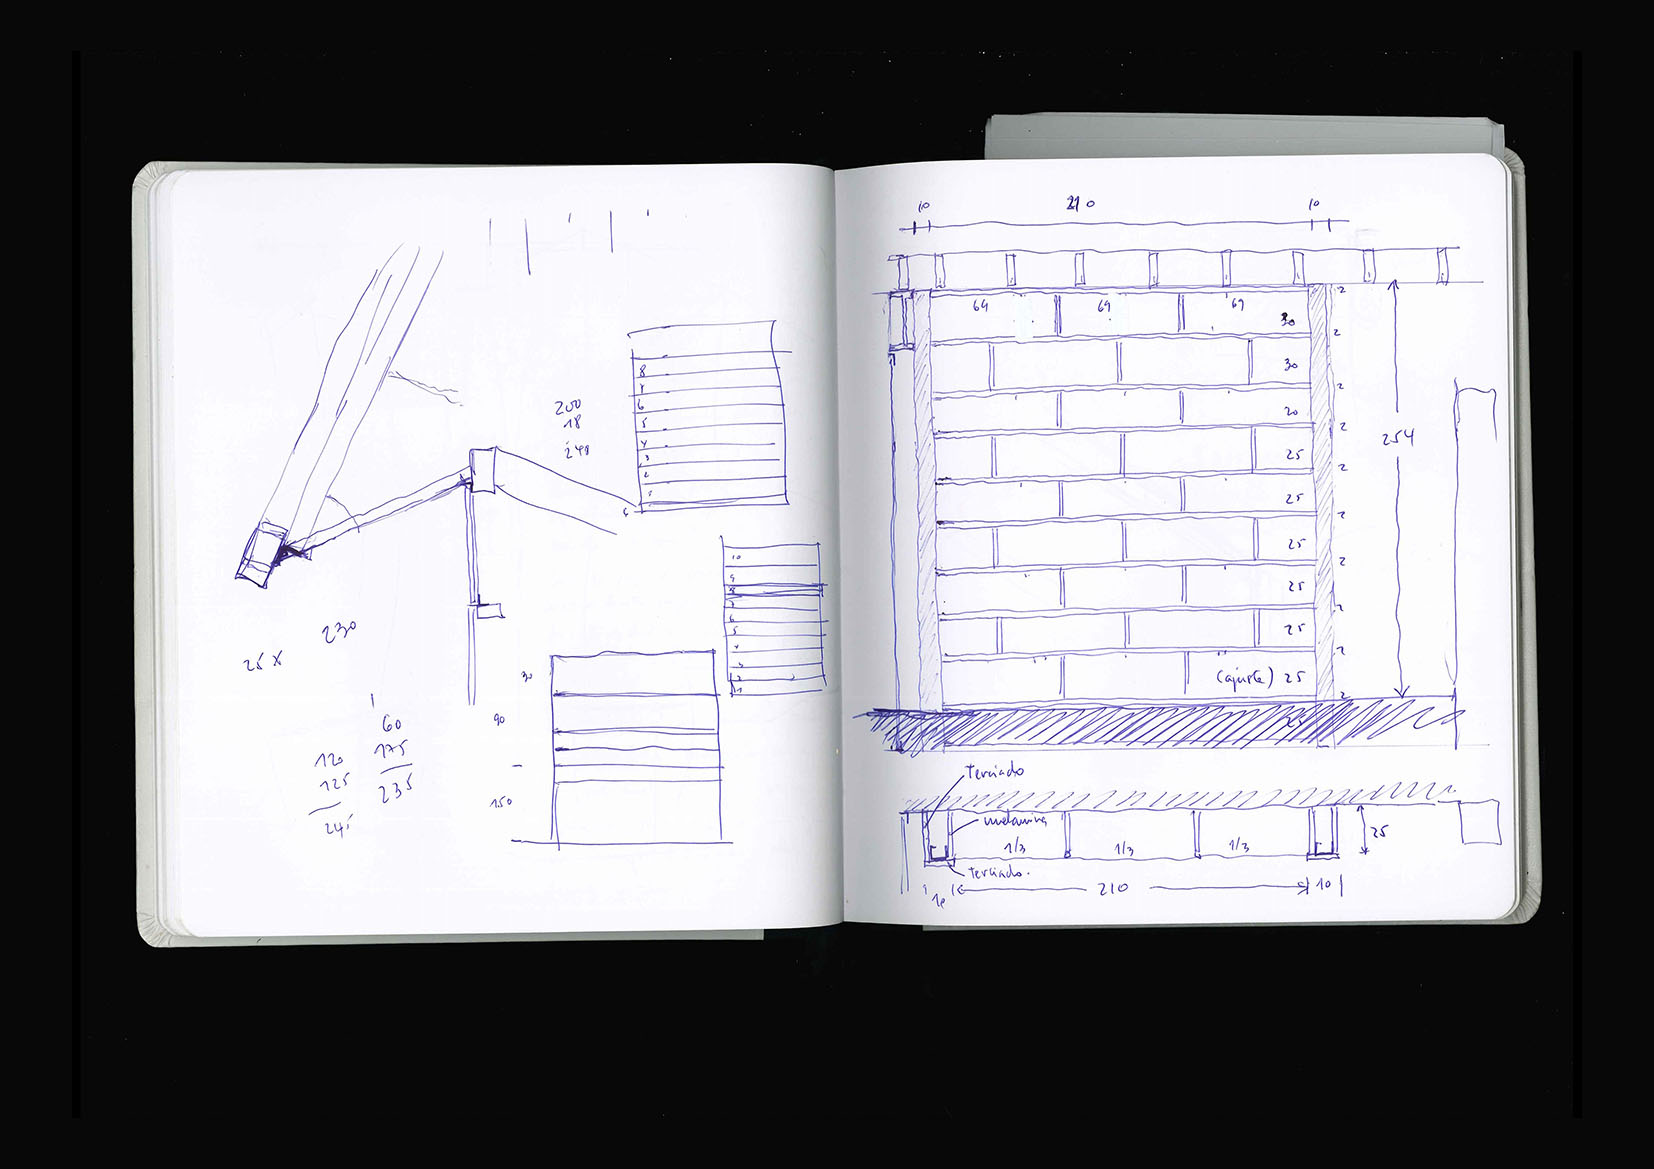 200
18
240
8
7
6
5
4
3
2
1
10
9
8
7
6
5
4
3
2
1
230
25 x
60
175
235
120
125
245
30
90
150
10 210 10
69 69 69
30
30
20
25
25
25
25
25
(ajuste) 25
2
2
2
2
2
2
2
2
2
2
254
terciado
melamina
1/3 1/3 1/3
25
terciado.
10 210 10